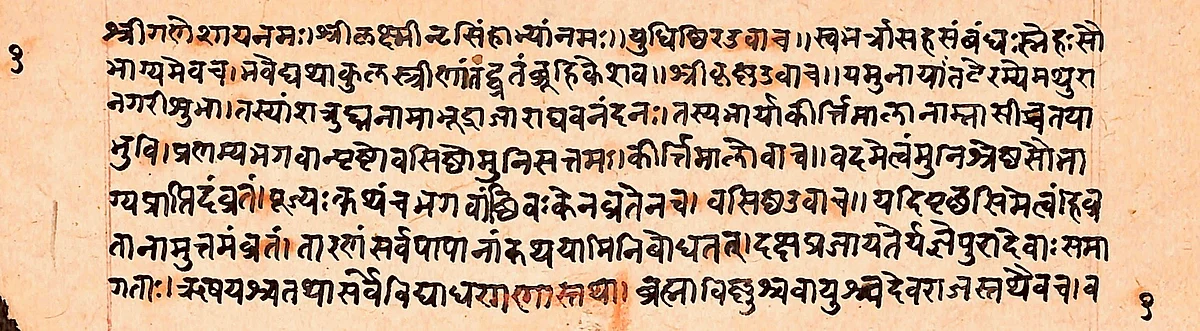 १
श्रीगणेशायनमः।श्रीलक्ष्मीनृसिंहाभ्यांनमः।।युधिष्ठिरउवाच।।स्वभर्त्रासहसंबंधःस्नेहःसौ
भाग्यमेवच।भवेद्यथाकुलस्त्रीणांतद्व्रतंब्रूहिकेशव।।श्रीकृष्णउवाच।।यमुनायास्तटेरम्येमथुरा
नगरीशुभा।तस्यांशत्रुघ्ननामाभूद्राजाराघवनंदनः।तस्यभार्याकीर्त्तिमालानाम्नासीच्चतया
भुवि।प्रणम्यभगवान्पृष्टोवसिष्ठोमुनिसत्तमः।कीर्त्तिमालोवाच।।वदमेत्वंमुनिश्रेष्ठसौभा
ग्यप्राप्तिदंव्रतं।पूज्यःकथंचभगवांछिवःकेनव्रतेनच।वसिष्ठउवाच।।यदिपृछसिमेत्वंहिव्र
तानामुत्तमंव्रतं।तारणंसर्वपापानांकथयामिनिबोधतत्।दक्षप्रजापतेर्यज्ञेपुरादेवाःसमा
गताः।ऋषयश्चतथासर्वेविद्याधरगणास्तथा।ब्रह्माविष्णुश्चवायुश्चदेवराजस्तथैवच।व
१